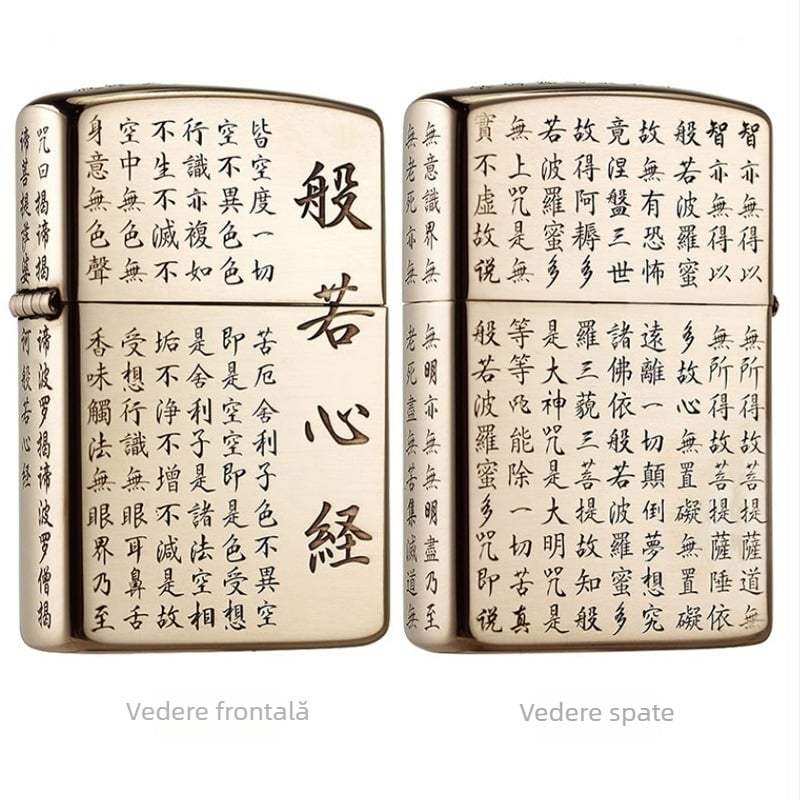 般若心経
皆空度一切苦厄舍利子色不異空
空不異色色即是空空即是色受想
行識亦複如是舍利子是諸法空相
不生不滅不垢不浄不增不減是故
空中無色無受想行識無眼耳鼻舌
身意無色聲香味觸法無眼界乃至
咒曰揭諦揭諦波罗揭諦波罗僧揭
諦菩提薩婆般若心経
智亦無得以無所得故菩提薩道無
智亦無得以無所得故菩提薩埵依
般若波羅蜜多故心無置礙無置礙
故無有恐怖遠離一切顛倒夢想究
竟涅盤三世諸佛依般若波羅蜜多
故得阿耨多羅三藐三菩提故知般
若波羅蜜多是大神咒是大明咒是
無上咒是無等等咒能除一切苦真
實不虛故说般若波羅蜜多咒即说
無意識界無無明亦無無明盡乃至
無老死亦無老死盡無苦集滅道無
Vedere frontală
Vedere spate